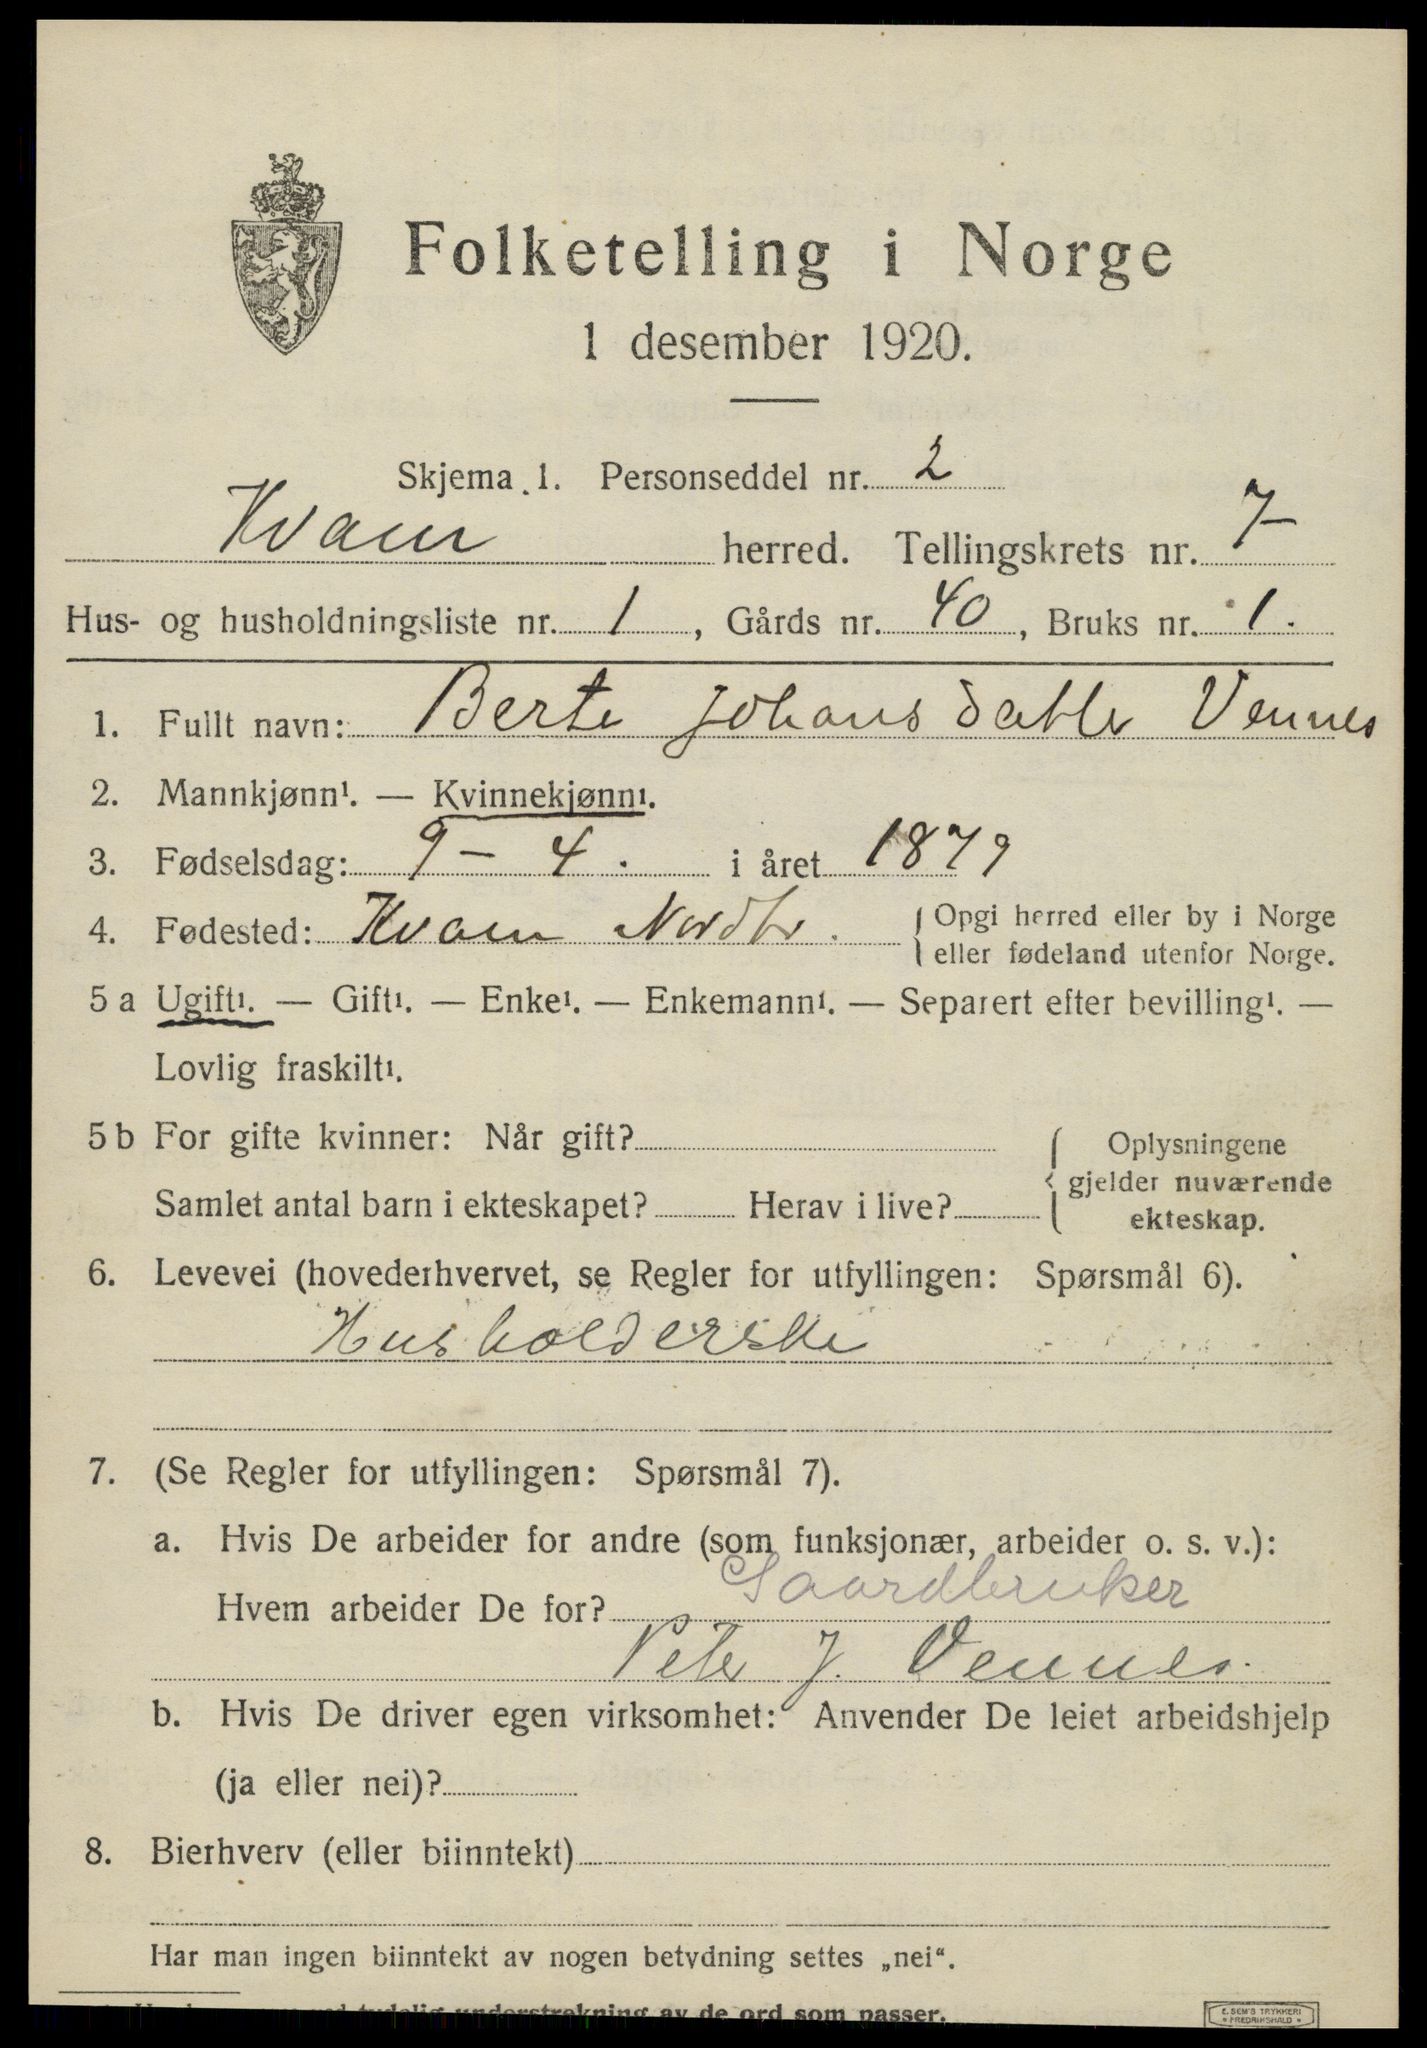 Folketelling i Norge
1 desember 1920.
Skjema 1. Personseddel nr. 2
Kvam herred. Tellingskrets nr. 7
Hus- og husholdningsliste nr. 1, Gårds nr. 40, Bruks nr. 1.
1. Fullt navn: Berte Johansdatter Vennes
2. Mannkjønn¹. — Kvinnekjønn¹.
3. Fødselsdag: 9 – 4. i året 1879
4. Fødested: Kvam Nordtr. { Opgi herred eller by i Norge
eller fødeland utenfor Norge.
5 a Ugift¹. — Gift¹. — Enke¹. — Enkemann¹. — Separert efter bevilling¹. —
Lovlig fraskilt¹.
5 b For gifte kvinner: Når gift?
Samlet antal barn i ekteskapet? Herav i live?
{ Oplysningene
gjelder nuværende
ekteskap.
6. Levevei (hovederhvervet, se Regler for utfyllingen: Spørsmål 6).
Husholderske
7. (Se Regler for utfyllingen: Spørsmål 7).
a. Hvis De arbeider for andre (som funksjonær, arbeider o. s. v.):
Hvem arbeider De for? Gaardbruker
Peter J. Vennes.
b. Hvis De driver egen virksomhet: Anvender De leiet arbeidshjelp
(ja eller nei)?
8. Bierhverv (eller biinntekt)
Har man ingen biinntekt av nogen betydning settes „nei“.
tydelig understrekning av de ord som passer.
E. SEM'S TRYKKERI
FREDRIKSHALD